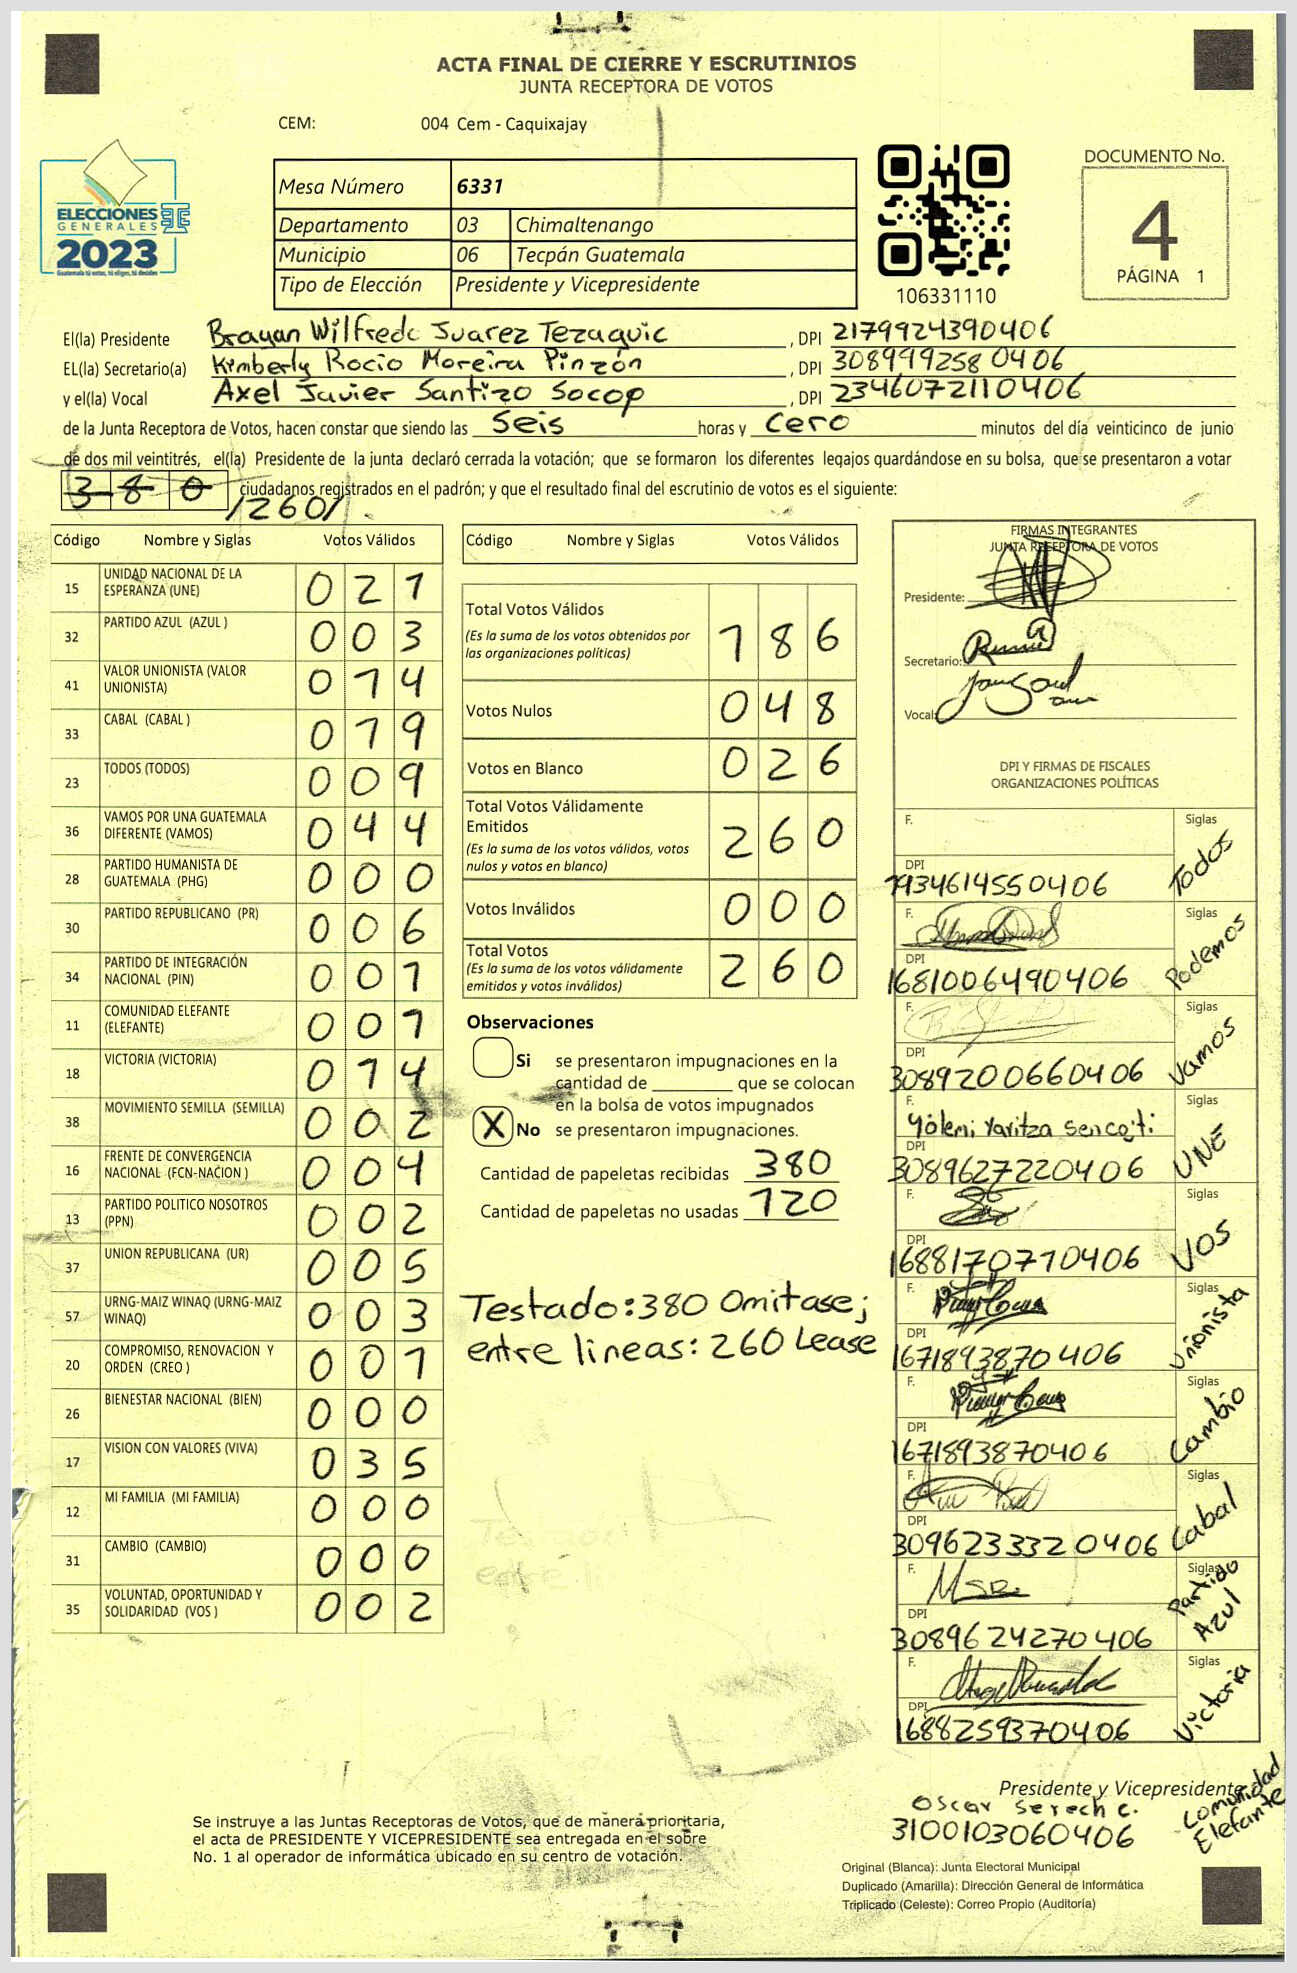 ACTA FINAL DE CIERRE Y ESCRUTINIOS
JUNTA RECEPTORA DE VOTOS
CEM: 004 Cem - Caquixajay
ELECCIONES
GENERALES
2023
Guatemala tú votas, tú eliges, tú decides
Mesa Número 6331
Departamento 03 Chimaltenango
Municipio 06 Tecpán Guatemala
Tipo de Elección Presidente y Vicepresidente
106331110
DOCUMENTO No.
4
PÁGINA 1
El(la) Presidente Brayan Wilfredo Juarez Tezaguic, DPI 2179924390406
EL(la) Secretario(a) Kimberly Rocio Moreira Pinzón, DPI 3089992580406
y el(la) Vocal Axel Javier Santizo Socop, DPI 2346072110406
de la Junta Receptora de Votos, hacen constar que siendo las Seis horas y Cero minutos del día veinticinco de junio
de dos mil veintitrés, el(la) Presidente de la junta declaró cerrada la votación; que se formaron los diferentes legajos guardándose en su bolsa, que se presentaron a votar
380 ciudadanos registrados en el padrón; y que el resultado final del escrutinio de votos es el siguiente:
/260/
Código Nombre y Siglas Votos Válidos
15 UNIDAD NACIONAL DE LA ESPERANZA (UNE) 021
32 PARTIDO AZUL (AZUL ) 003
41 VALOR UNIONISTA (VALOR UNIONISTA) 014
33 CABAL (CABAL ) 019
23 TODOS (TODOS) 009
36 VAMOS POR UNA GUATEMALA DIFERENTE (VAMOS) 044
28 PARTIDO HUMANISTA DE GUATEMALA (PHG) 000
30 PARTIDO REPUBLICANO (PR) 006
34 PARTIDO DE INTEGRACIÓN NACIONAL (PIN) 001
11 COMUNIDAD ELEFANTE (ELEFANTE) 001
18 VICTORIA (VICTORIA) 014
38 MOVIMIENTO SEMILLA (SEMILLA) 002
16 FRENTE DE CONVERGENCIA NACIONAL (FCN-NACION ) 004
13 PARTIDO POLITICO NOSOTROS (PPN) 002
37 UNION REPUBLICANA (UR) 005
57 URNG-MAIZ WINAQ (URNG-MAIZ WINAQ) 003
20 COMPROMISO, RENOVACION Y ORDEN (CREO ) 001
26 BIENESTAR NACIONAL (BIEN) 000
17 VISION CON VALORES (VIVA) 035
12 MI FAMILIA (MI FAMILIA) 000
31 CAMBIO (CAMBIO) 000
35 VOLUNTAD, OPORTUNIDAD Y SOLIDARIDAD (VOS ) 002
Código Nombre y Siglas Votos Válidos
Total Votos Válidos 186
(Es la suma de los votos obtenidos por
las organizaciones políticas)
Votos Nulos 048
Votos en Blanco 026
Total Votos Válidamente
Emitidos 260
(Es la suma de los votos válidos, votos
nulos y votos en blanco)
Votos Inválidos 000
Total Votos 260
(Es la suma de los votos válidamente
emitidos y votos inválidos)
Observaciones
Si se presentaron impugnaciones en la
cantidad de ________ que se colocan
en la bolsa de votos impugnados
X No se presentaron impugnaciones.
Cantidad de papeletas recibidas 380
Cantidad de papeletas no usadas 120
Testado: 380 Omitase;
entre lineas: 260 Lease
FIRMAS INTEGRANTES
JUNTA RECEPTORA DE VOTOS
Presidente:
Secretario:
Vocal:
DPI Y FIRMAS DE FISCALES
ORGANIZACIONES POLÍTICAS
F. Siglas
DPI Todos
1934614550406
F. Siglas
DPI Podemos
1681006490406
F. Siglas
DPI Vamos
3089200660406
F. Siglas
DPI UNE
3089627220406
F. Siglas
DPI VOS
1688170710406
F. Siglas
DPI Unionista
1671893870406
F. Siglas
DPI Cambio
1671893870406
F. Siglas
DPI Cabal
3096233320406
F. Siglas
DPI Partido Azul
3089624270406
F. Siglas
DPI Victoria
1688259370406
Presidente y Vicepresidente
Oscar Serech C.
3100103060406
Comunidad
Elefante
Se instruye a las Juntas Receptoras de Votos, que de manera prioritaria,
el acta de PRESIDENTE Y VICEPRESIDENTE sea entregada en el sobre
No. 1 al operador de informática ubicado en su centro de votación.
Original (Blanca): Junta Electoral Municipal
Duplicado (Amarilla): Dirección General de Informática
Triplicado (Celeste): Correo Propio (Auditoría)